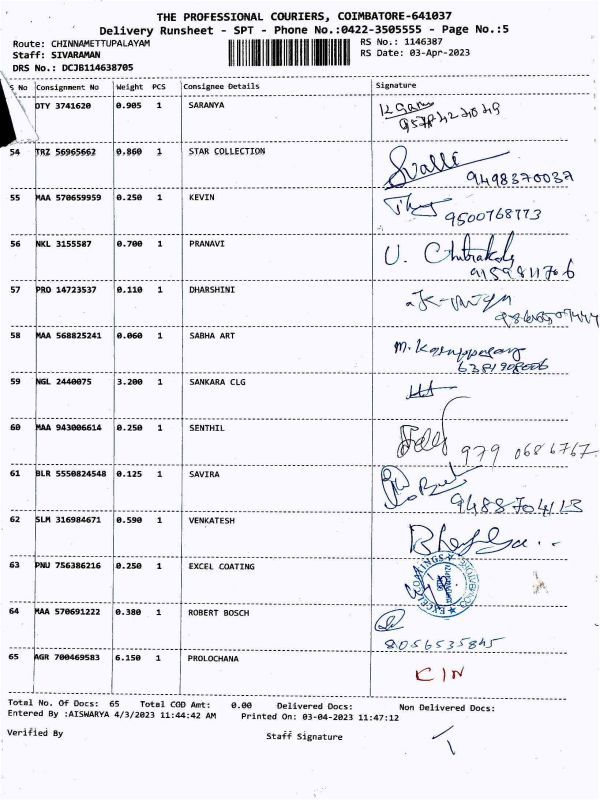 THE PROFESSIONAL COURIERS, COIMBATORE-641037
Delivery Runsheet - SPT - Phone No.:0422-3505555 - Page No.:5
Route: CHINNAMETTUPALAYAM RS No.: 1146387
Staff: SIVARAMAN RS Date: 03-Apr-2023
DRS No.: DCJB114638705
S No Consignment No Weight PCS Consignee Details Signature
DTY 3741620 0.905 1 SARANYA
54 TRZ 56965662 0.860 1 STAR COLLECTION
Svalli
9498370037
55 MAA 570659959 0.250 1 KEVIN
9500768773
56 NKL 3155587 0.700 1 PRANAVI
9159811706
57 PRO 14723537 0.110 1 DHARSHINI
58 MAA 568825241 0.060 1 SABHA ART
M. Karuppasamy
6381908006
59 NGL 2440075 3.200 1 SANKARA CLG
60 MAA 943006614 0.250 1 SENTHIL
979 0686767
61 BLR 5550824548 0.125 1 SAVIRA
9488704113
62 SLM 316984671 0.590 1 VENKATESH
63 PNU 756386216 0.250 1 EXCEL COATING
EXCEL COATINGS
64 MAA 570691222 0.380 1 ROBERT BOSCH
8056535845
65 AGR 700469583 6.150 1 PROLOCHANA
KIN
Total No. Of Docs: 65 Total COD Amt: 0.00 Delivered Docs: Non Delivered Docs:
Entered By :AISWARYA 4/3/2023 11:44:42 AM Printed On: 03-04-2023 11:47:12
Verified By Staff Signature